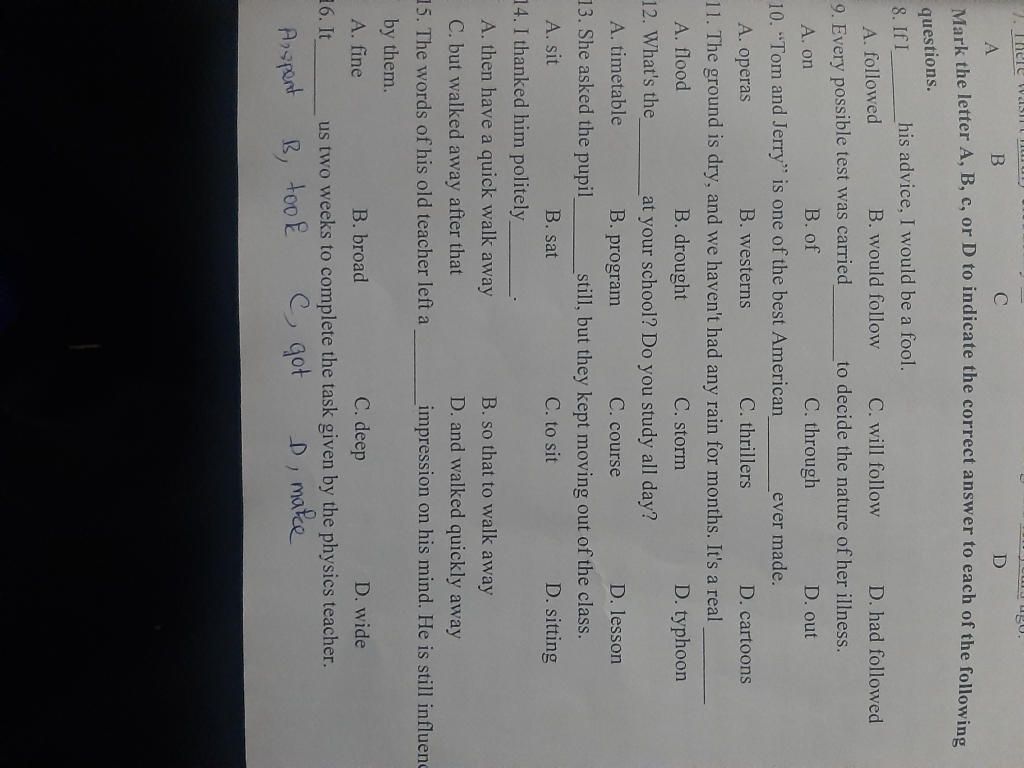 A B C D
Mark the letter A, B, c, or D to indicate the correct answer to each of the following
questions.
8. If I______ his advice, I would be a fool.
A. followed B. would follow C. will follow D. had followed
9. Every possible test was carried______ to decide the nature of her illness.
A. on B. of C. through D. out
10. “Tom and Jerry” is one of the best American______ ever made.
A. operas B. westerns C. thrillers D. cartoons
11. The ground is dry, and we haven't had any rain for months. It's a real ______
A. flood B. drought C. storm D. typhoon
12. What's the______ at your school? Do you study all day?
A. timetable B. program C. course D. lesson
13. She asked the pupil______ still, but they kept moving out of the class.
A. sit B. sat C. to sit D. sitting
14. I thanked him politely______.
A. then have a quick walk away B. so that to walk away
C. but walked away after that D. and walked quickly away
15. The words of his old teacher left a ______ impression on his mind. He is still influen
by them.
A. fine B. broad C. deep D. wide
16. It______ us two weeks to complete the task given by the physics teacher.
A, spent B, took C, got D, make